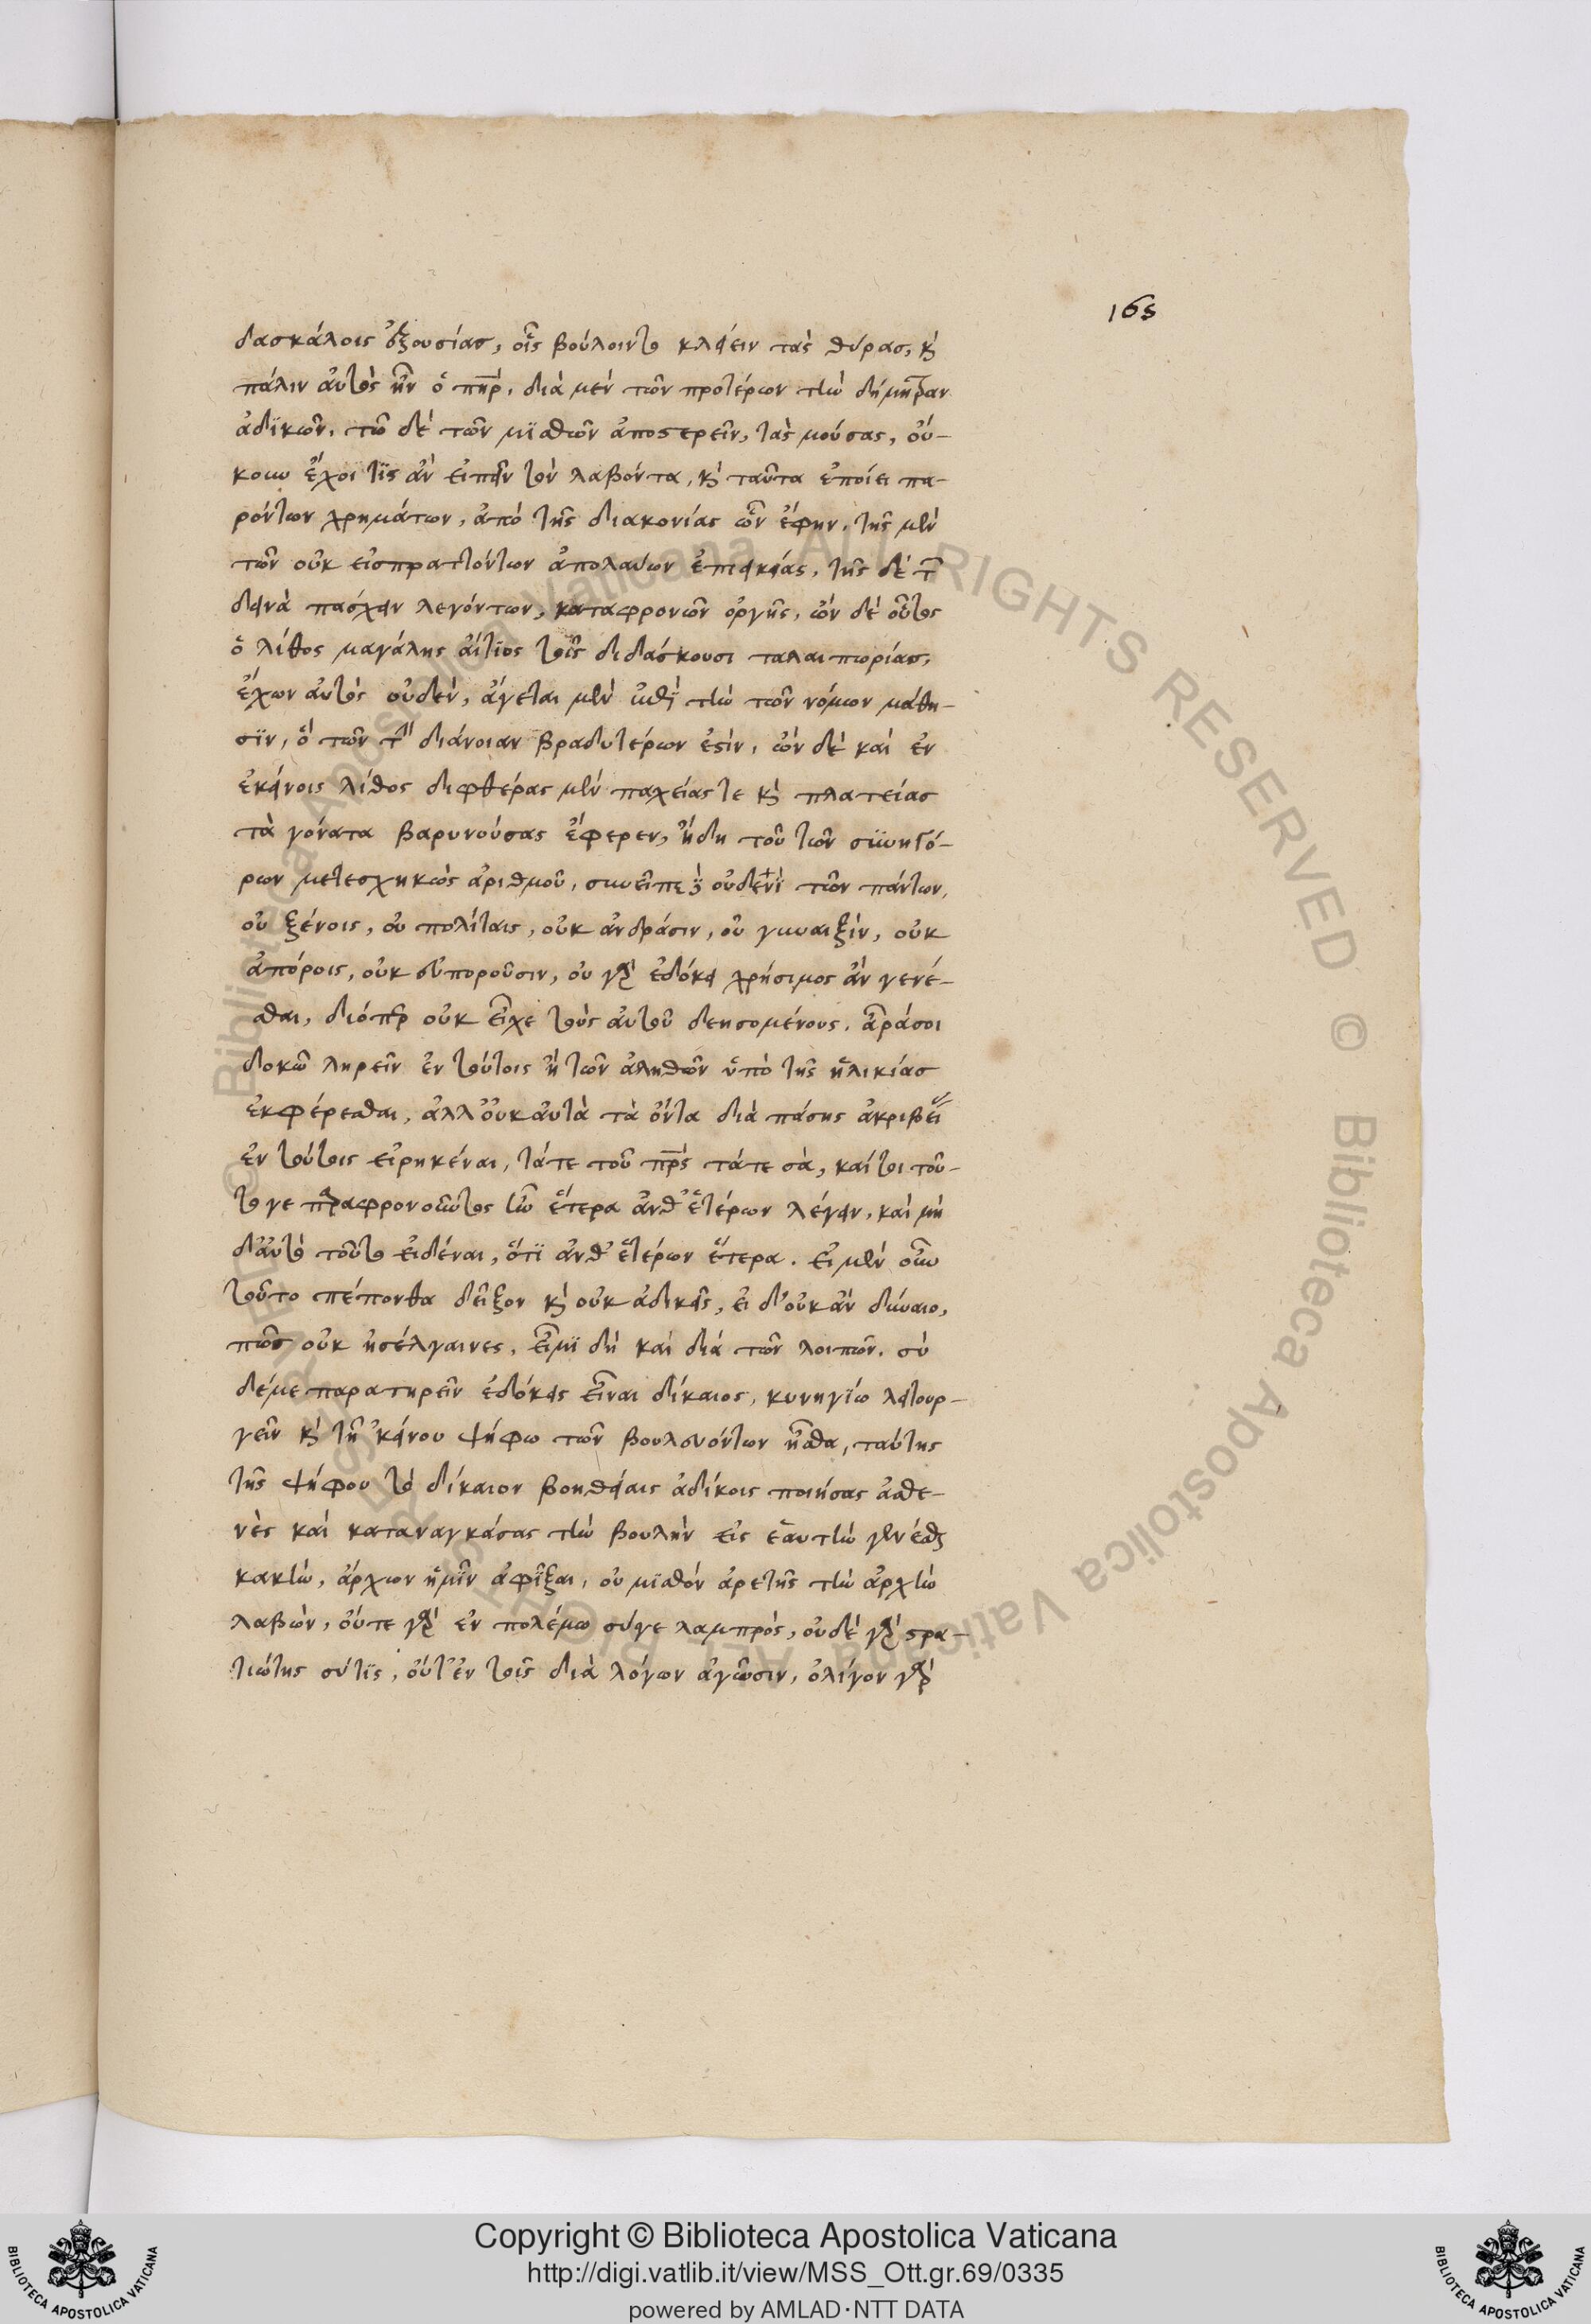 165
δασκάλοις ἐξουσίας, οἷς βούλοιντο κλείειν τὰς θύρας, κὶ
πάλιν αὐτὸς ἦν ὁ πηρ, διὰ μὲν τῶν προτέρων τὴν δήμητραν
ἀδικῶν, τῶ δὲ τῶν μισθῶν ἀποστερεῖν, τὰς μούσας, οὔ-
κουν ἔχοι τις ἂν εἰπεῖν τὸν λαβόντα, κὶ ταῦτα ἐποίει πα-
ρόντων χρημάτων, ἀπὸ τῆς διακονίας ὧν ἔφην, τῆς μὲν
τῶν οὐκ εἰσπραττόντων ἀπολαύων ἐπιεικείας, τῆς δὲ τῶν
δεινὰ πάσχειν λεγόντων, καταφρονῶν ὀργῆς, ὢν δὲ οὗτος
ὁ λίθος μαγάλης αἴτιος τοῖς διδάσκουσι ταλαιπωρίας,
ἔχων αὐτὸς οὐδὲν, ἄγεται μὲν ἐπὶ τὴν τῶν νόμων μάθη-
σιν, ὃ τῶν τὴν διάνοιαν βραδυτέρων ἐστὶν, ὢν δὲ καὶ ἐν
ἐκείνοις λίθος διφθέρας μὲν παχείας τε κὶ πλατείας
τὰ γόνατα βαρυνούσας ἔφερεν, ἤδη τοῦ τῶν συνηγό-
ρων μετεσχηκὼς ἀριθμοῦ, συνεῖπε δ οὐδενὶ τῶν πάντων,
οὐ ξένοις, οὐ πολίταις, οὐκ ἀνδράσιν, οὐ γυναιξὶν, οὐκ
ἀπόροις, οὐκ εὐποροῦσιν, οὐ γὰρ ἐδόκει χρήσιμος ἂν γενέ-
σθαι, διόπερ οὐκ εἶχε τοὺς αὐτοῦ δεησομένους. ἆρά σοι
δοκῶ ληρεῖν ἐν τούτοις ἢ τῶν ἀληθῶν ὑπὸ τῆς ἡλικίας
ἐκφέρεσθαι, ἀλλ' οὐκ αὐτὰ τὰ ὄντα διὰ πάσης ἀκριβεί
ἐν τούτοις εἰρηκέναι, τά τε τοῦ πρς τά τε σὰ, καίτοι τοῦ-
τό γε παραφρονοῦντος ἦν ἕτερα ἀνθ' ἑτέρων λέγειν, καὶ μη
δ' αὐτὸ τοῦτο εἰδέναι, ὅτι ἀνθ' ἑτέρων ἕτερα. εἰ μὲν οὖν
τοῦτο πέπονθα δεῖξον κὶ οὐκ ἀδικεῖς, εἰ δ' οὐκ ἂν δύναιο,
πῶς οὐκ ἠσέλγαινες. εἶμι δὴ καὶ διὰ τῶν λοιπῶν. σὺ
δέ με παρατηρεῖν ἐδόκεις εἶναι δίκαιος, κυνηγίω λειτουρ-
γεῖν κὶ τῆ ἐκείνου ψήφω τῶν βουλευόντων ἦσθα, ταύτης
τῆς ψήφου τὸ δίκαιον βοηθείαις ἀδίκοις ποιήσας ἀσθε-
νὲς καὶ καταναγκάσας τὴν βουλὴν εἰς ἑαυτὴν γενέσθαι
κακὴν, ἄρχων ἡμῖν ἀφῖξαι, οὐ μισθὸν ἀρετῆς τὴν ἀρχὴν
λαβὼν, οὔτε γὰρ ἐν πολέμω σύγε λαμπρὸς, οὐδὲ γὰρ στρα-
τιώτης σύ τις, οὔτ' ἐν τοῖς διὰ λόγων ἀγῶσιν, ὀλίγον γὰρ
© Biblioteca Apostolica Vaticana ALL RIGHTS RESERVED © Biblioteca Apostolica Vaticana ALL RIGHTS RESERVED
BIBLIOTECA APOSTOLICA VATICANA
Copyright © Biblioteca Apostolica Vaticana
http://digi.vatlib.it/view/MSS_Ott.gr.69/0335
powered by AMLAD·NTT DATA
BIBLIOTECA APOSTOLICA VATICANA